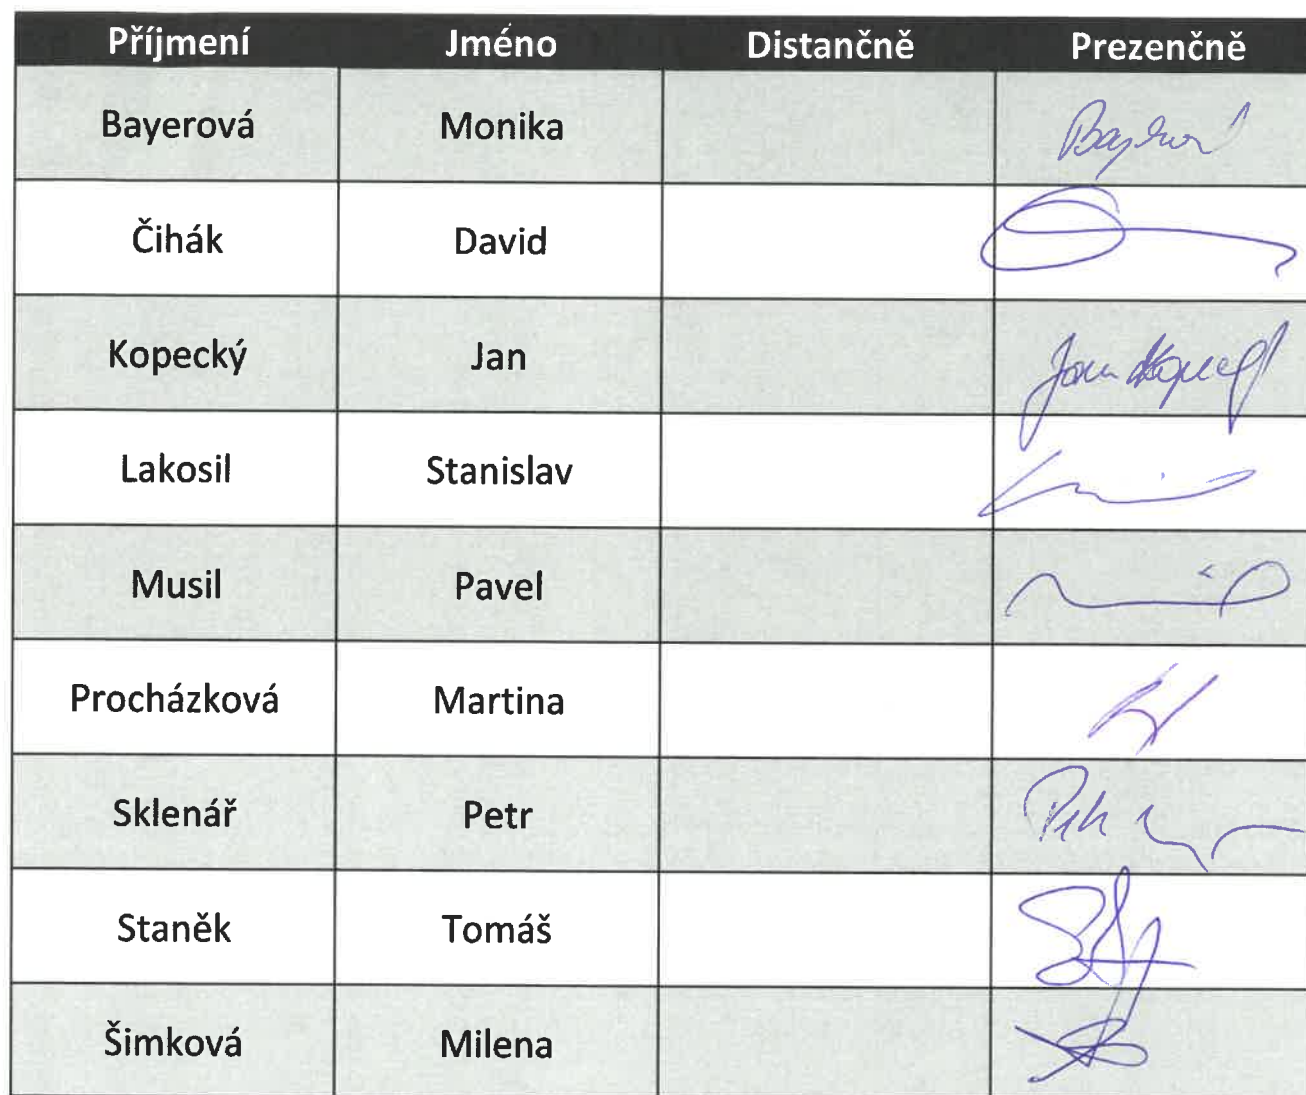 Příjmení Jméno Distančně Prezenčně
Bayerová Monika
Čihák David
Kopecký Jan Jan Kopecký
Lakosil Stanislav
Musil Pavel
Procházková Martina
Sklenář Petr Petr
Staněk Tomáš
Šimková Milena